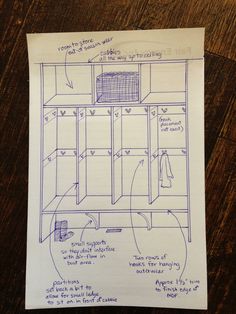 room to store
out-of season wear
cubbies
all the way up to ceiling
(hook
placement
not exact)
small supports
so they don't interfere
with air-flow in
boot area.
Two rows of
hooks for hanging
outerwear
partitions
set back a bit to
allow for small ledge
to sit on in front of cubbie
Approx 1½" trim
to finish edge of
MDF.